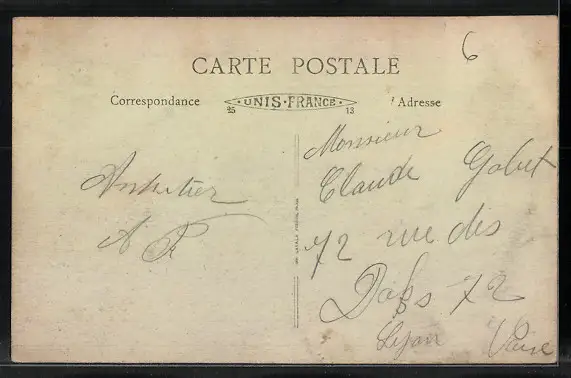 6
CARTE POSTALE
Correspondance
UNIS-FRANCE
25
13
Adresse
Monsieur
Claude Gobet
72 rue des
Docks 72
Lyon Vaise
A R